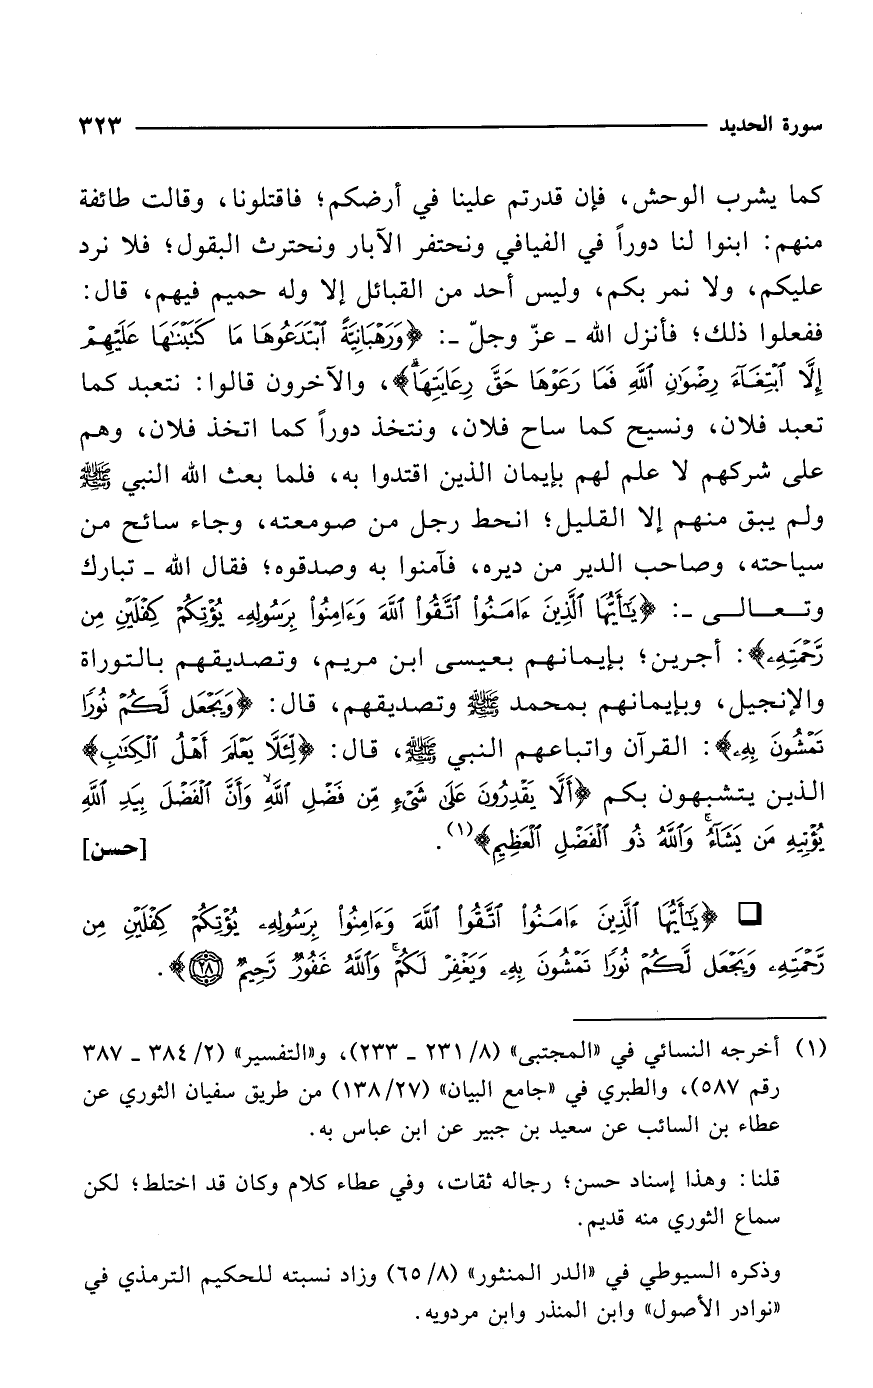 سورة الحديد ٣٢٣
كما يشرب الوحش، فإن قدرتم علينا في أرضكم؛ فاقتلونا، وقالت طائفة
منهم: ابنوا لنا دوراً في الفيافي ونحتفر الآبار ونحترث البقول؛ فلا نرد
عليكم، ولا نمر بكم، وليس أحد من القبائل إلا وله حميم فيهم، قال:
ففعلوا ذلك؛ فأنزل الله ـ عزّ وجلّ ـ: ﴿وَرَهْبَانِيَّةً ٱبْتَدَعُوهَا مَا كَتَبْنَٰهَا عَلَيْهِمْ
إِلَّا ٱبْتِغَآءَ رِضْوَٰنِ ٱللَّهِ فَمَا رَعَوْهَا حَقَّ رِعَايَتِهَا ۖ﴾، والآخرون قالوا: نتعبد كما
تعبد فلان، ونسيح كما ساح فلان، ونتخذ دوراً كما اتخذ فلان، وهم
على شركهم لا علم لهم بإيمان الذين اقتدوا به، فلما بعث الله النبي ﷺ
ولم يبق منهم إلا القليل؛ انحط رجل من صومعته، وجاء سائح من
سياحته، وصاحب الدير من ديره، فآمنوا به وصدقوه؛ فقال الله ـ تبارك
وتعالى ـ: ﴿يَٰٓأَيُّهَا ٱلَّذِينَ ءَامَنُوا۟ ٱتَّقُوا۟ ٱللَّهَ وَءَامِنُوا۟ بِرَسُولِهِۦ يُؤْتِكُمْ كِفْلَيْنِ مِن
رَّحْمَتِهِۦ﴾: أجرين؛ بإيمانهم بعيسى ابن مريم، وتصديقهم بالتوراة
والإنجيل، وبإيمانهم بمحمد ﷺ وتصديقهم، قال: ﴿وَيَجْعَل لَّكُمْ نُورًا
تَمْشُونَ بِهِۦ﴾: القرآن واتباعهم النبي ﷺ، قال: ﴿لِّئَلَّا يَعْلَمَ أَهْلُ ٱلْكِتَٰبِ﴾
الذين يتشبهون بكم ﴿أَلَّا يَقْدِرُونَ عَلَىٰ شَىْءٍ مِّن فَضْلِ ٱللَّهِ ۙ وَأَنَّ ٱلْفَضْلَ بِيَدِ ٱللَّهِ
يُؤْتِيهِ مَن يَشَآءُ ۚ وَٱللَّهُ ذُو ٱلْفَضْلِ ٱلْعَظِيمِ﴾(١). [حسن]
❏ ﴿يَٰٓأَيُّهَا ٱلَّذِينَ ءَامَنُوا۟ ٱتَّقُوا۟ ٱللَّهَ وَءَامِنُوا۟ بِرَسُولِهِۦ يُؤْتِكُمْ كِفْلَيْنِ مِن
رَّحْمَتِهِۦ وَيَجْعَل لَّكُمْ نُورًا تَمْشُونَ بِهِۦ وَيَغْفِرْ لَكُمْ ۚ وَٱللَّهُ غَفُورٌ رَّحِيمٌ ٢٨﴾.
(١) أخرجه النسائي في «المجتبى» (٨/ ٢٣١ ـ ٢٣٣)، و«التفسير» (٢/ ٣٨٤ ـ ٣٨٧
رقم ٥٨٧)، والطبري في «جامع البيان» (٢٧/ ١٣٨) من طريق سفيان الثوري عن
عطاء بن السائب عن سعيد بن جبير عن ابن عباس به.
قلنا: وهذا إسناد حسن؛ رجاله ثقات، وفي عطاء كلام وكان قد اختلط؛ لكن
سماع الثوري منه قديم.
وذكره السيوطي في «الدر المنثور» (٨/ ٦٥) وزاد نسبته للحكيم الترمذي في
«نوادر الأصول» وابن المنذر وابن مردويه.